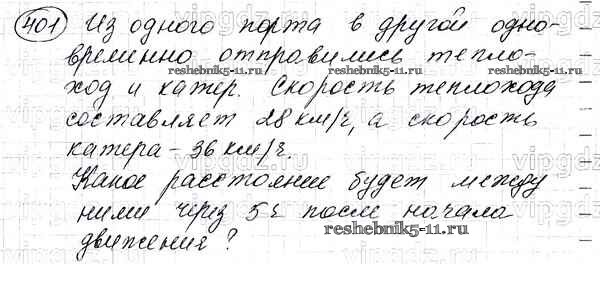 401 Из одного порта в другой одно-
временно отправились тепло-
ход и катер. Скорость теплохода
составляет 28 км/ч, а скорость
катера - 36 км/ч.
Какое расстояние будет между
ними через 5 ч после начала
движения?
reshebnik5-11.ru
reshebnik5-11.ru
reshebnik5-11.ru